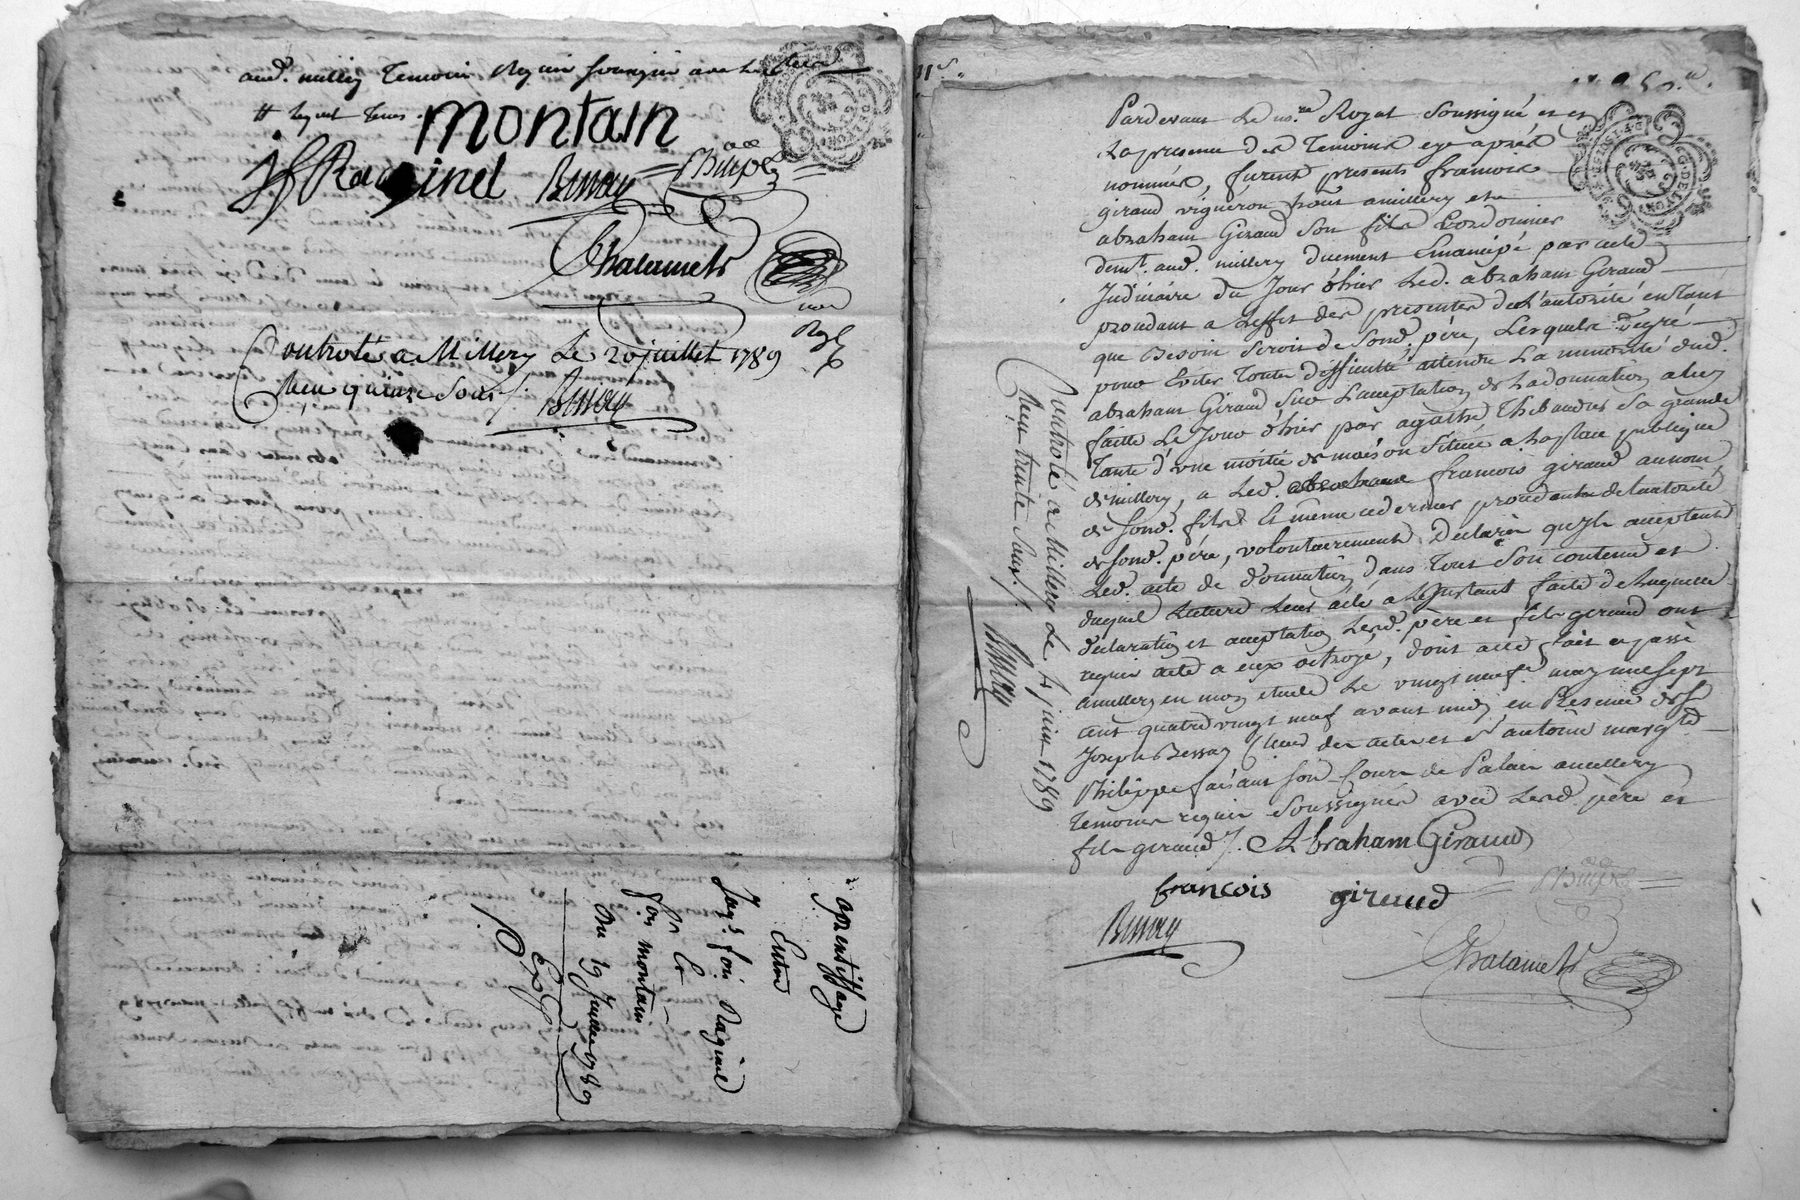 aud. millery Temoin Requis soussignés avec
# lequel
montain
Bessay
Chalamel
not
Royl
Controlé a Millery Le 20 juillet 1789
Reçu quinze sous /. Bessay
apprentissage
Entre
Jaqs. fois Raginel
& Cr
fois montain
Du 19 Juillet 1789
Exp
Pardevant Le nore. Royal Soussigné et en
La presence des Temoins cy apprès
nommés, furent presents francois
giraud vigneron hant amillery et
abraham Giraud Son fils Cordonnier
demt. aud. millery duement Emancipé par acte
Judiciaire du Jour d'hier Led. abraham Giraud
procedant a L'effet des presentes de L'autorité en tant
que Besoin Seroit de Sond. père, Lesquels de gré
pour Eviter Toutes difficulté attendu La minorité dud.
abraham Giraud Sur L'acceptation de La donnation a luy
faitte Le Jour d'hier par agathe Thibaudier Sa grande
Tante d'une moitié de maison Située a La place publique
de millery, a Led. francois giraud au nom
de Sond. fils Et meme ce dernier procedant de L'autorité
de Sond. père, volontairement Declaré qu'ils acceptent
Led. acte de donnation dans Tout Son contenu et
duquel Lecture Leur a été a L'instant faite de Laquelle
declaration et acceptation Lesd. père et fils giraud ont
requis acte a eux octroyé, dont acte fait et passé
amillery en mon etude Le vingt neuf may mil sept
cent quatre vingt neuf avant midy en Presence de Sr.
Joseph Bessay Cleur des actes et Sr antoine margte.
Philippe faisant Son Cours de Palais amillery
Temoins requis Soussignés avec Lesd. père et
fils giraud /. Abraham Giraud
francois giraud
Bessay
Chalamel
Controlé a Millery Le 4 juin 1789
Reçu trente Sous /. Bessay